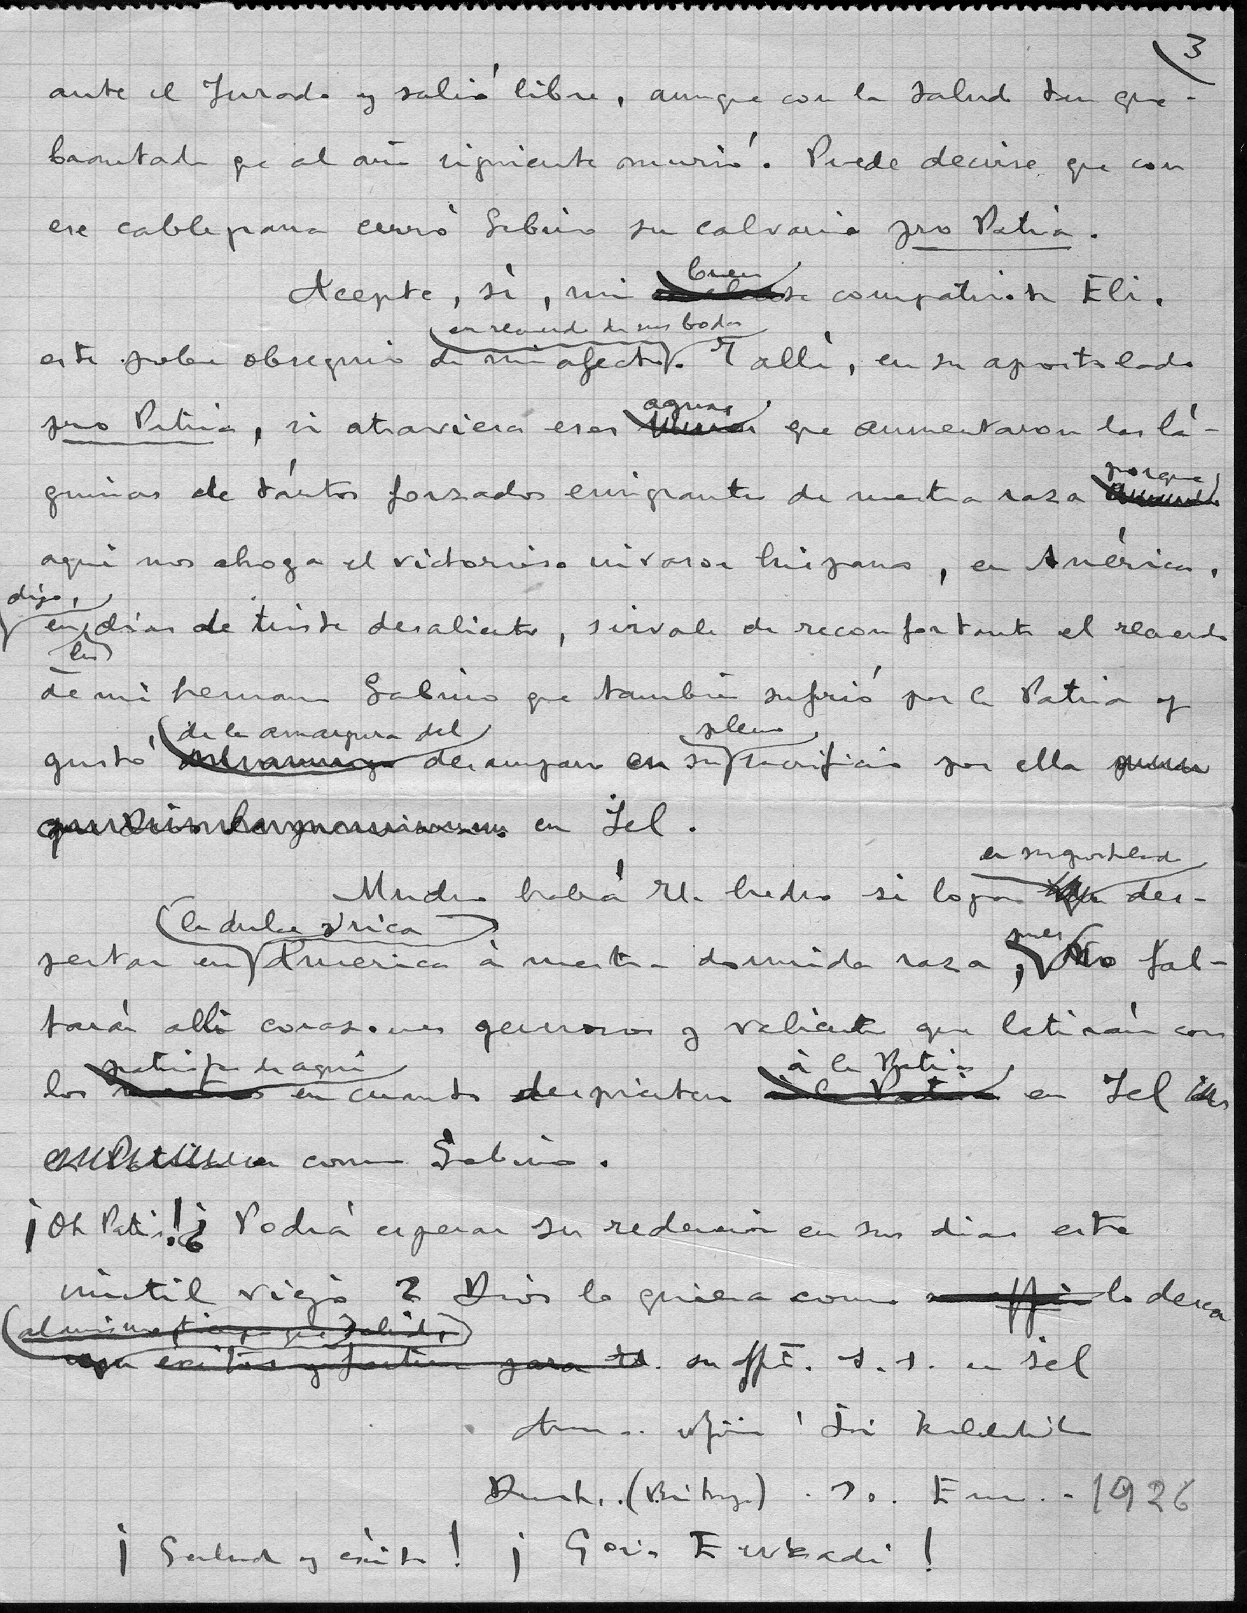 3
ante el Jurado y salió libre, aunque con la salud tan que-
brantada qe al año siguiente murió. Puede decirse que con
ese cablegrama cerró Sabino su calvario pro Patria.
buen
Acepte, sí, mi compatriota Eli,
en recuerdo de sus bodas
este pobre obsequio de mi afecto. Y allí, en su apostolado
aguas
pro Patria, si atraviesa esas que aumentaron las lá-
porque
grimas de tantos forzados emigrantes de nuestra raza
aqui nos ahoga el victorioso invasor hispano, en América,
digo,
en días de triste desaliento, sírvale de reconfortante el recuerdo
los
de mi hermano Sabino que también sufrió por la Patria y
de la amargura del pleno
gustó desamparo en su sacrificio por ella
en Jel.
en su apostolado
Mucho habrá Ud. hecho si logra des-
la dulce y rica
pertar en América á nuestra dormida raza,
pues
No fal-
tarán allí corazones generosos y valientes que latirán con
patriotas de aquí á la Patria
los en cuanto despierten en Jel
como Sabino.
¡Oh Patria! ¿Podrá esperar su redención en sus dias este
inútil viejo? Dios lo quiera como lo desea
al mismo tiempo que salud,
para Ud. su affmo. s. s. en Jel
1926
¡Salud y éxito! ¡Gora Euzkadi!